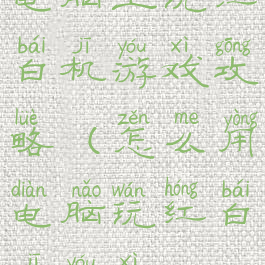 电脑上玩红
bái jī yóu xì gōng
白机游戏攻
lüè zěn me yòng
略（怎么用
diàn nǎo wán hóng bái
电脑玩红白
jī yóu xì